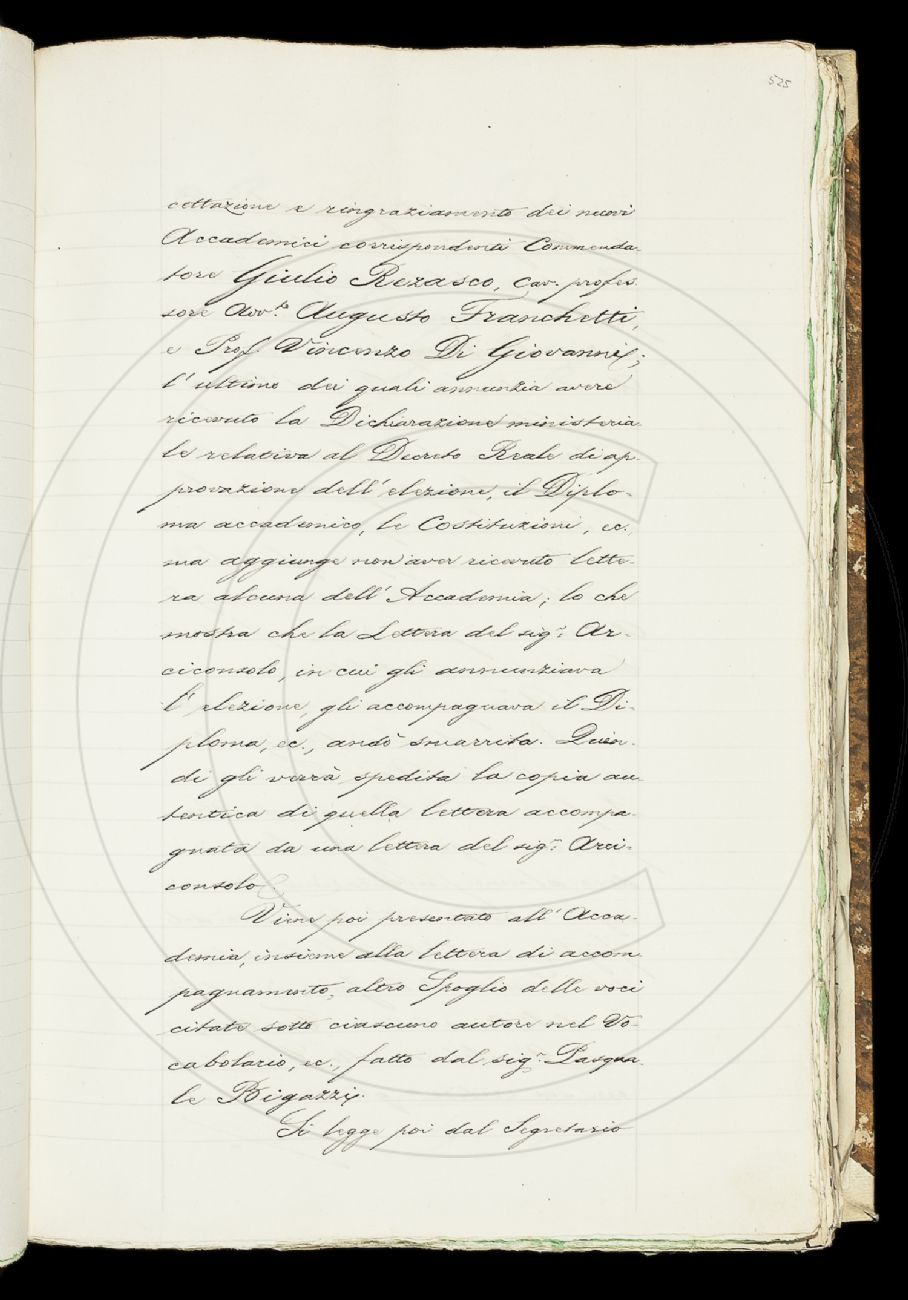 525
cettazione e ringraziamento dei nuovi
Accademici corrispondenti Commenda-
tore Giulio Rezasco, Cav. profes-
sore Avv.to Augusto Franchetti,
e Prof. Vincenzo Di Giovanni;
l'ultimo dei quali annunzia avere
ricevuto la Dichiarazione ministeria-
le relativa al Decreto Reale di ap-
provazione dell'elezione, il Diplo-
ma accademico, le Costituzioni, ec.,
ma aggiunge non aver ricevuto lette-
ra alcuna dell'Accademia; lo che
mostra che la Lettera del sig.r Ar-
ciconsolo, in cui gli annunziava
l'elezione, gli accompagnava il Di-
ploma, ec., andò smarrita. Quin-
di gli verrà spedita la copia au-
tentica di quella lettera accompa-
gnata da una lettera del sig.r Arci-
consolo.
Viene poi presentato all'Acca-
demia, insieme alla lettera di accom-
pagnamento, altro Spoglio delle voci
citate sotto ciascuno autore nel Vo-
cabolario, ec., fatto dal sig.r Pasqua-
le Bigazzi.
Si legge poi dal Segretario